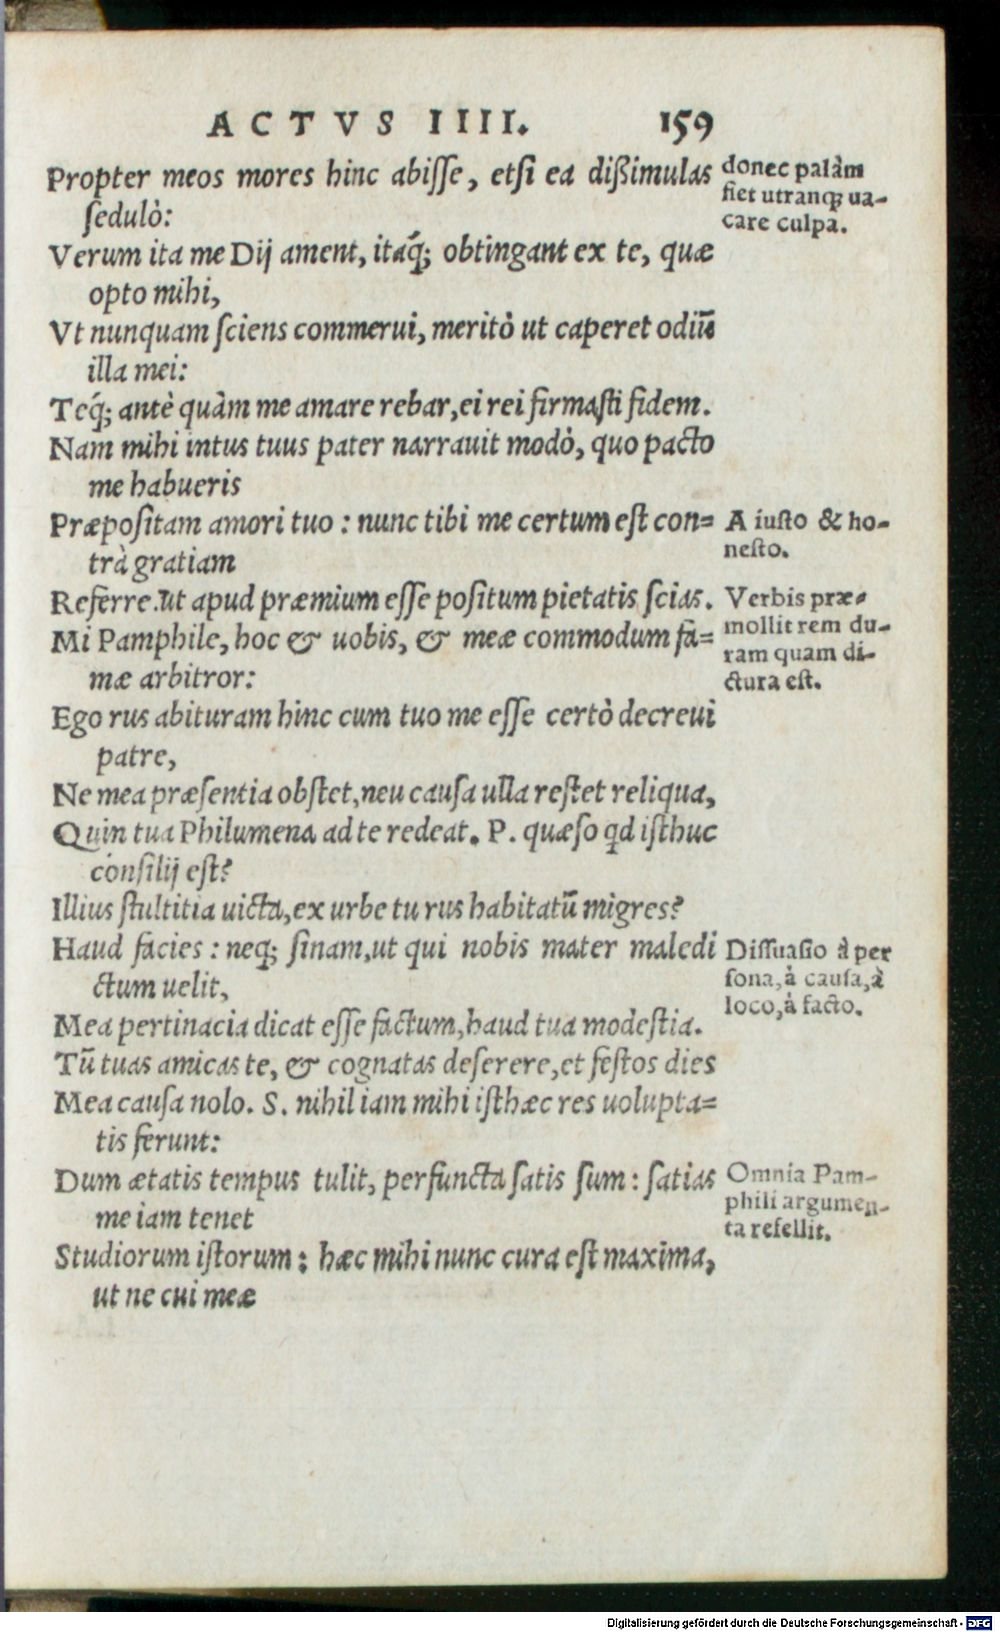 ACTVS IIII. 159
Propter meos mores hinc abisse, etsi ea dißimulas
sedulò:
Verum ita me Dij ament, itaq́; obtingant ex te, quæ
opto mihi,
Vt nunquam sciens commerui, meritò ut caperet odiũ
illa mei:
Teq́; antè quàm me amare rebar, ei rei firmasti fidem.
Nam mihi intus tuus pater narrauit modò, quo pacto
me habueris
Præpositam amori tuo: nunc tibi me certum est con=
trà gratiam
Referre. ut apud præmium esse positum pietatis scias.
Mi Pamphile, hoc & uobis, & meæ commodum fa=
mæ arbitror:
Ego rus abituram hinc cum tuo me esse certò decreui
patre,
Ne mea præsentia obstet, neu causa ulla restet reliqua,
Quin tua Philumena ad te redeat. P. quæso qd isthuc
consilij est?
Illius stultitia uicta, ex urbe tu rus habitatũ migres?
Haud facies: neq; sinam, ut qui nobis mater maledi
ctum uelit,
Mea pertinacia dicat esse factum, haud tua modestia.
Tũ tuas amicas te, & cognatas deserere, et festos dies
Mea causa nolo. S. nihil iam mihi isthæc res uolupta=
tis ferunt:
Dum ætatis tempus tulit, perfuncta satis sum: satias
me iam tenet
Studiorum istorum: hæc mihi nunc cura est maxima,
ut ne cui meæ
donec palàm
fiet utranq; ua-
care culpa.
A iusto & ho-
nesto.
Verbis præ-
mollit rem du-
ram quam di-
ctura est.
Dissuasio à per
sona, à causa, à
loco, à facto.
Omnia Pam-
phili argumen-
ta refellit.
Digitalisierung gefördert durch die Deutsche Forschungsgemeinschaft - DFG